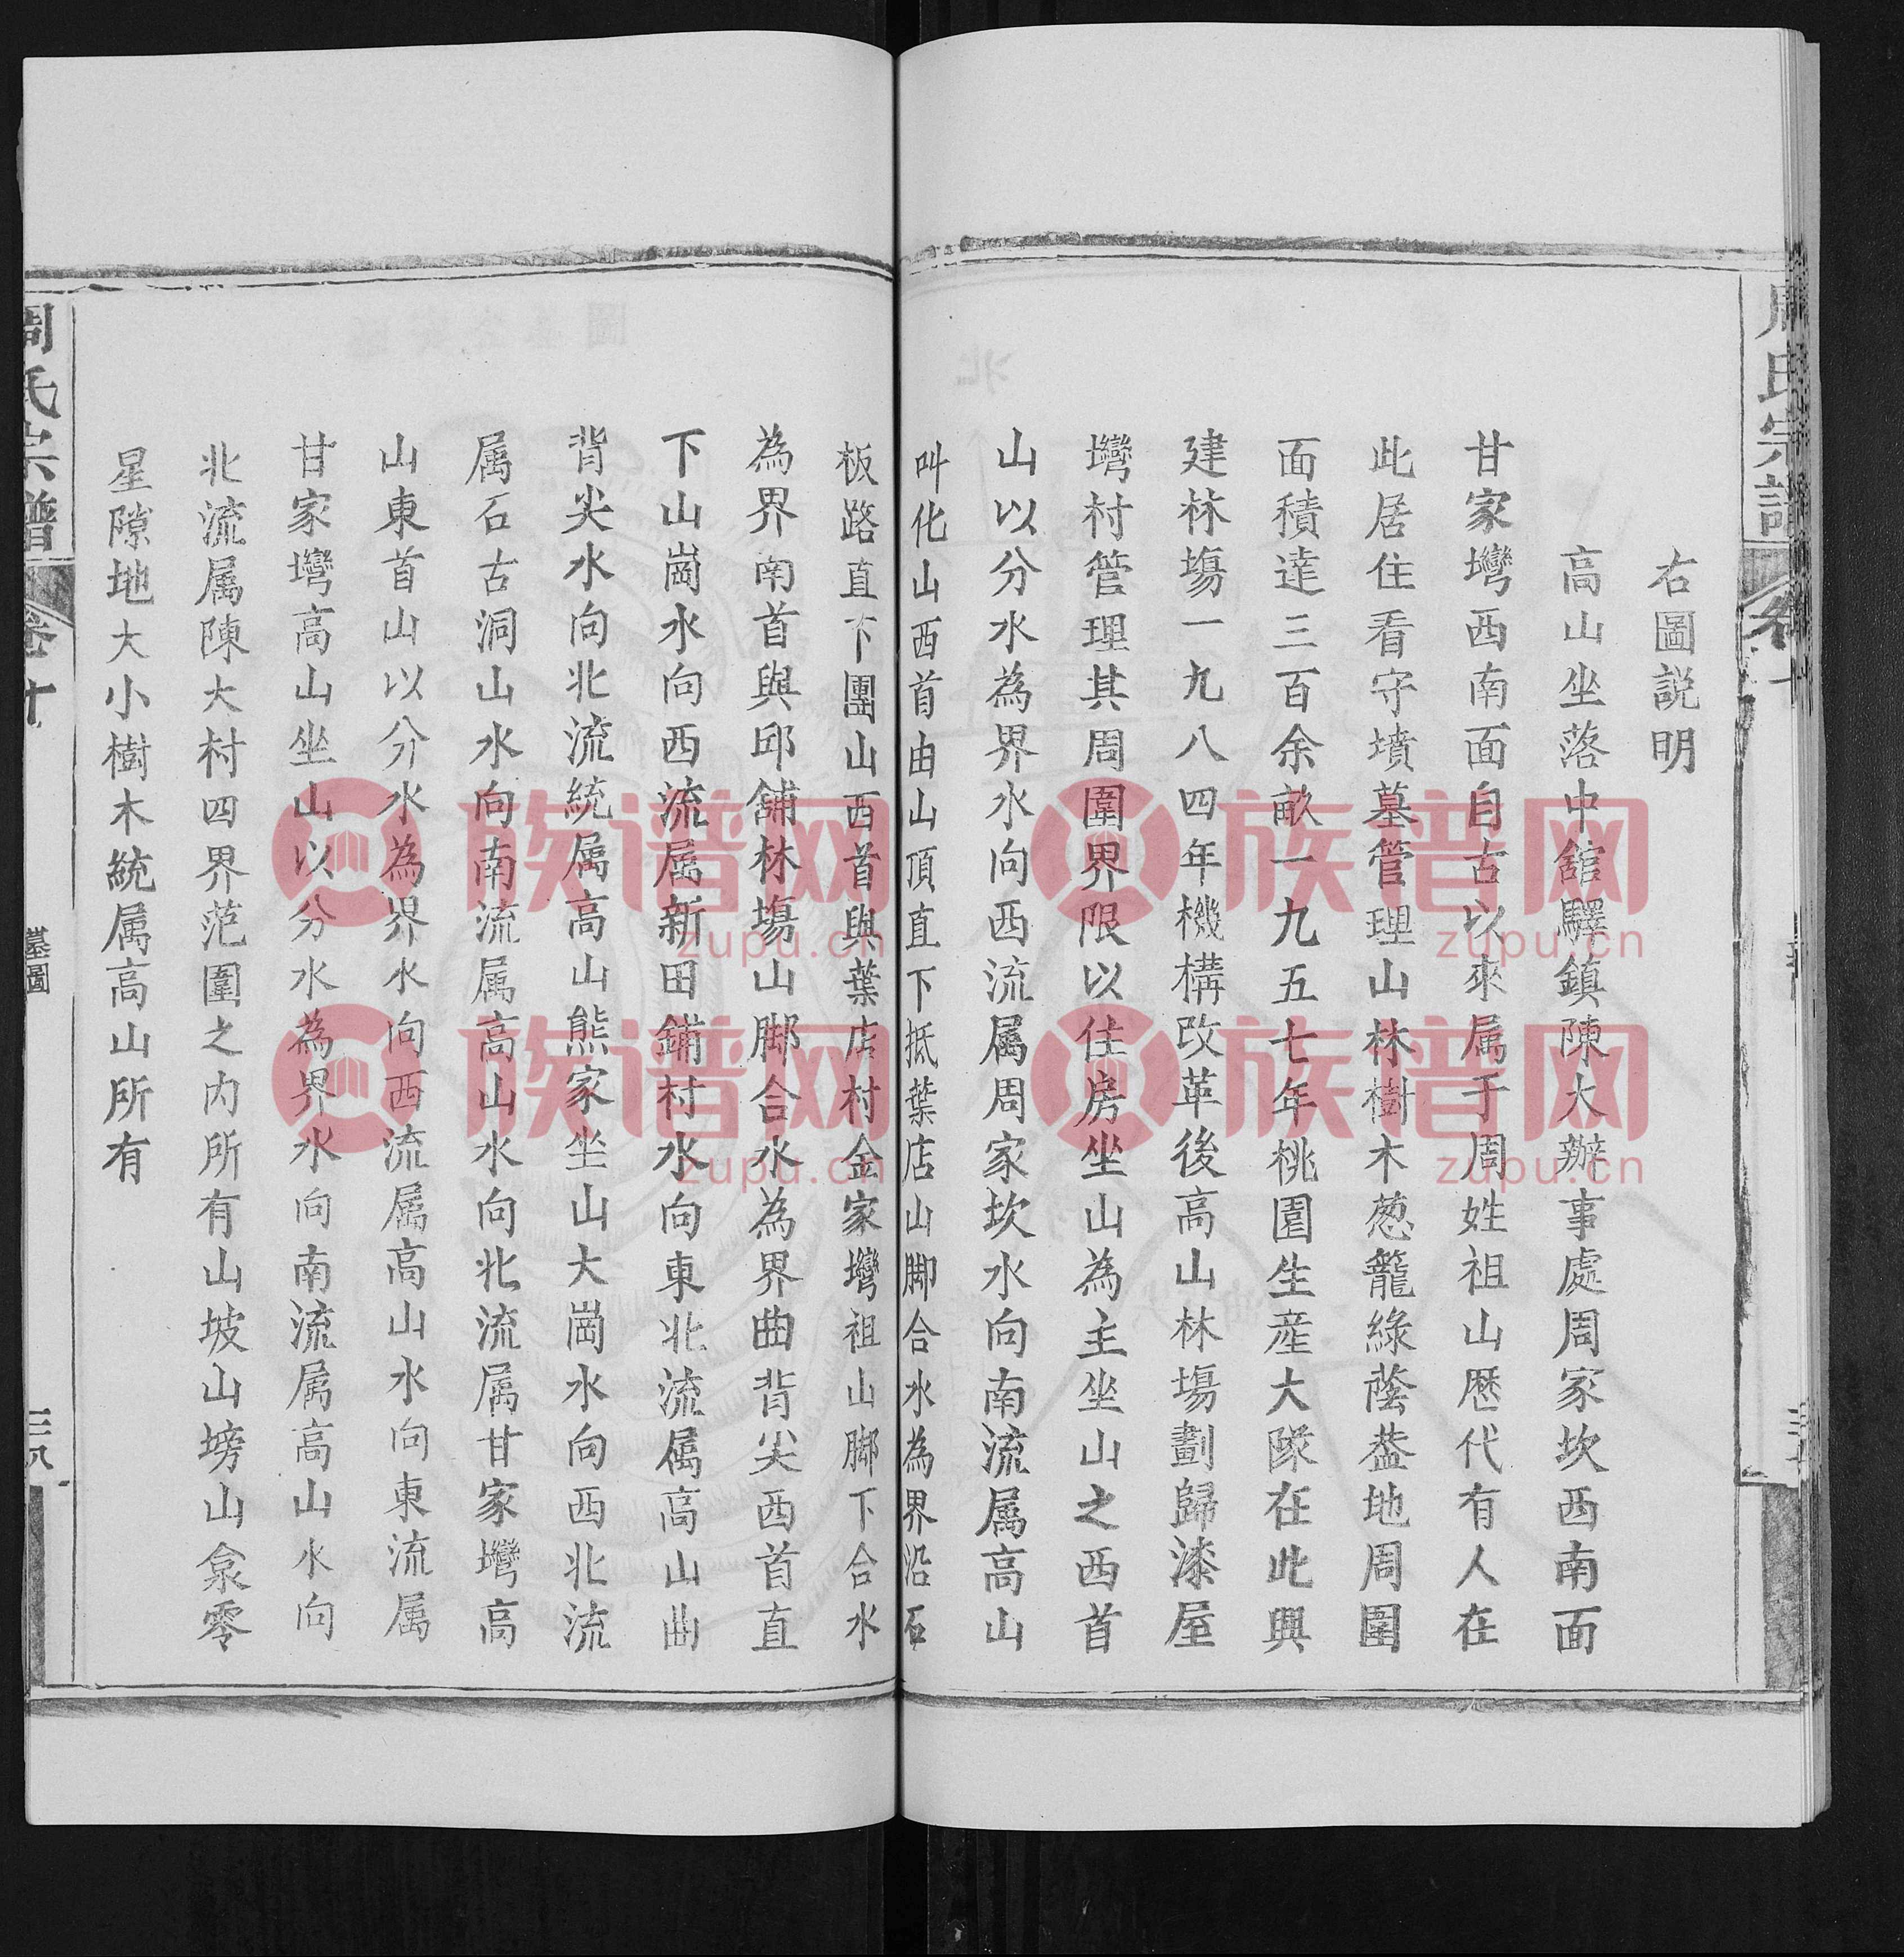 右圖説明
高山坐落中舘驛鎮陳大辦事處周家坎西南面
甘家塆西南面自古以來属于周姓祖山厯代有人在
此居住看守墳墓管理山林樹木葱籠綠蔭葢地周圍
面積達三百余畝一九五七年桃園生産大隊在此興
建林塲一九八四年機構改革後高山林塲劃歸漆屋
塆村管理其周圍界限以住房坐山為主坐山之西首
山以分水為界水向西流属周家坎水向南流属高山
叫化山西首由山頂直下抵葉店山脚合水為界沿石
板路直下團山西首與葉店村金家塆祖山脚下合水
為界南首與邱舖林塲山脚合水為界曲背尖西首直
下山崗水向西流属新田鋪村水向東北流属高山曲
背尖水向北流統属高山熊家坐山大崗水向西北流
属石古洞山水向南流属高山水向北流属甘家塆高
山東首山以分水為界水向西流属高山水向東流属
甘家塆高山坐山以分水為界水向南流属高山水向
北流属陳大村四界范圍之内所有山坡山塝山氽零
星隙地大小樹木統属高山所有
周氏宗譜
卷十
墓圖
三八
族谱网
zupu.cn
族谱网
zupu.cn
族谱网
zupu.cn
族谱网
zupu.cn